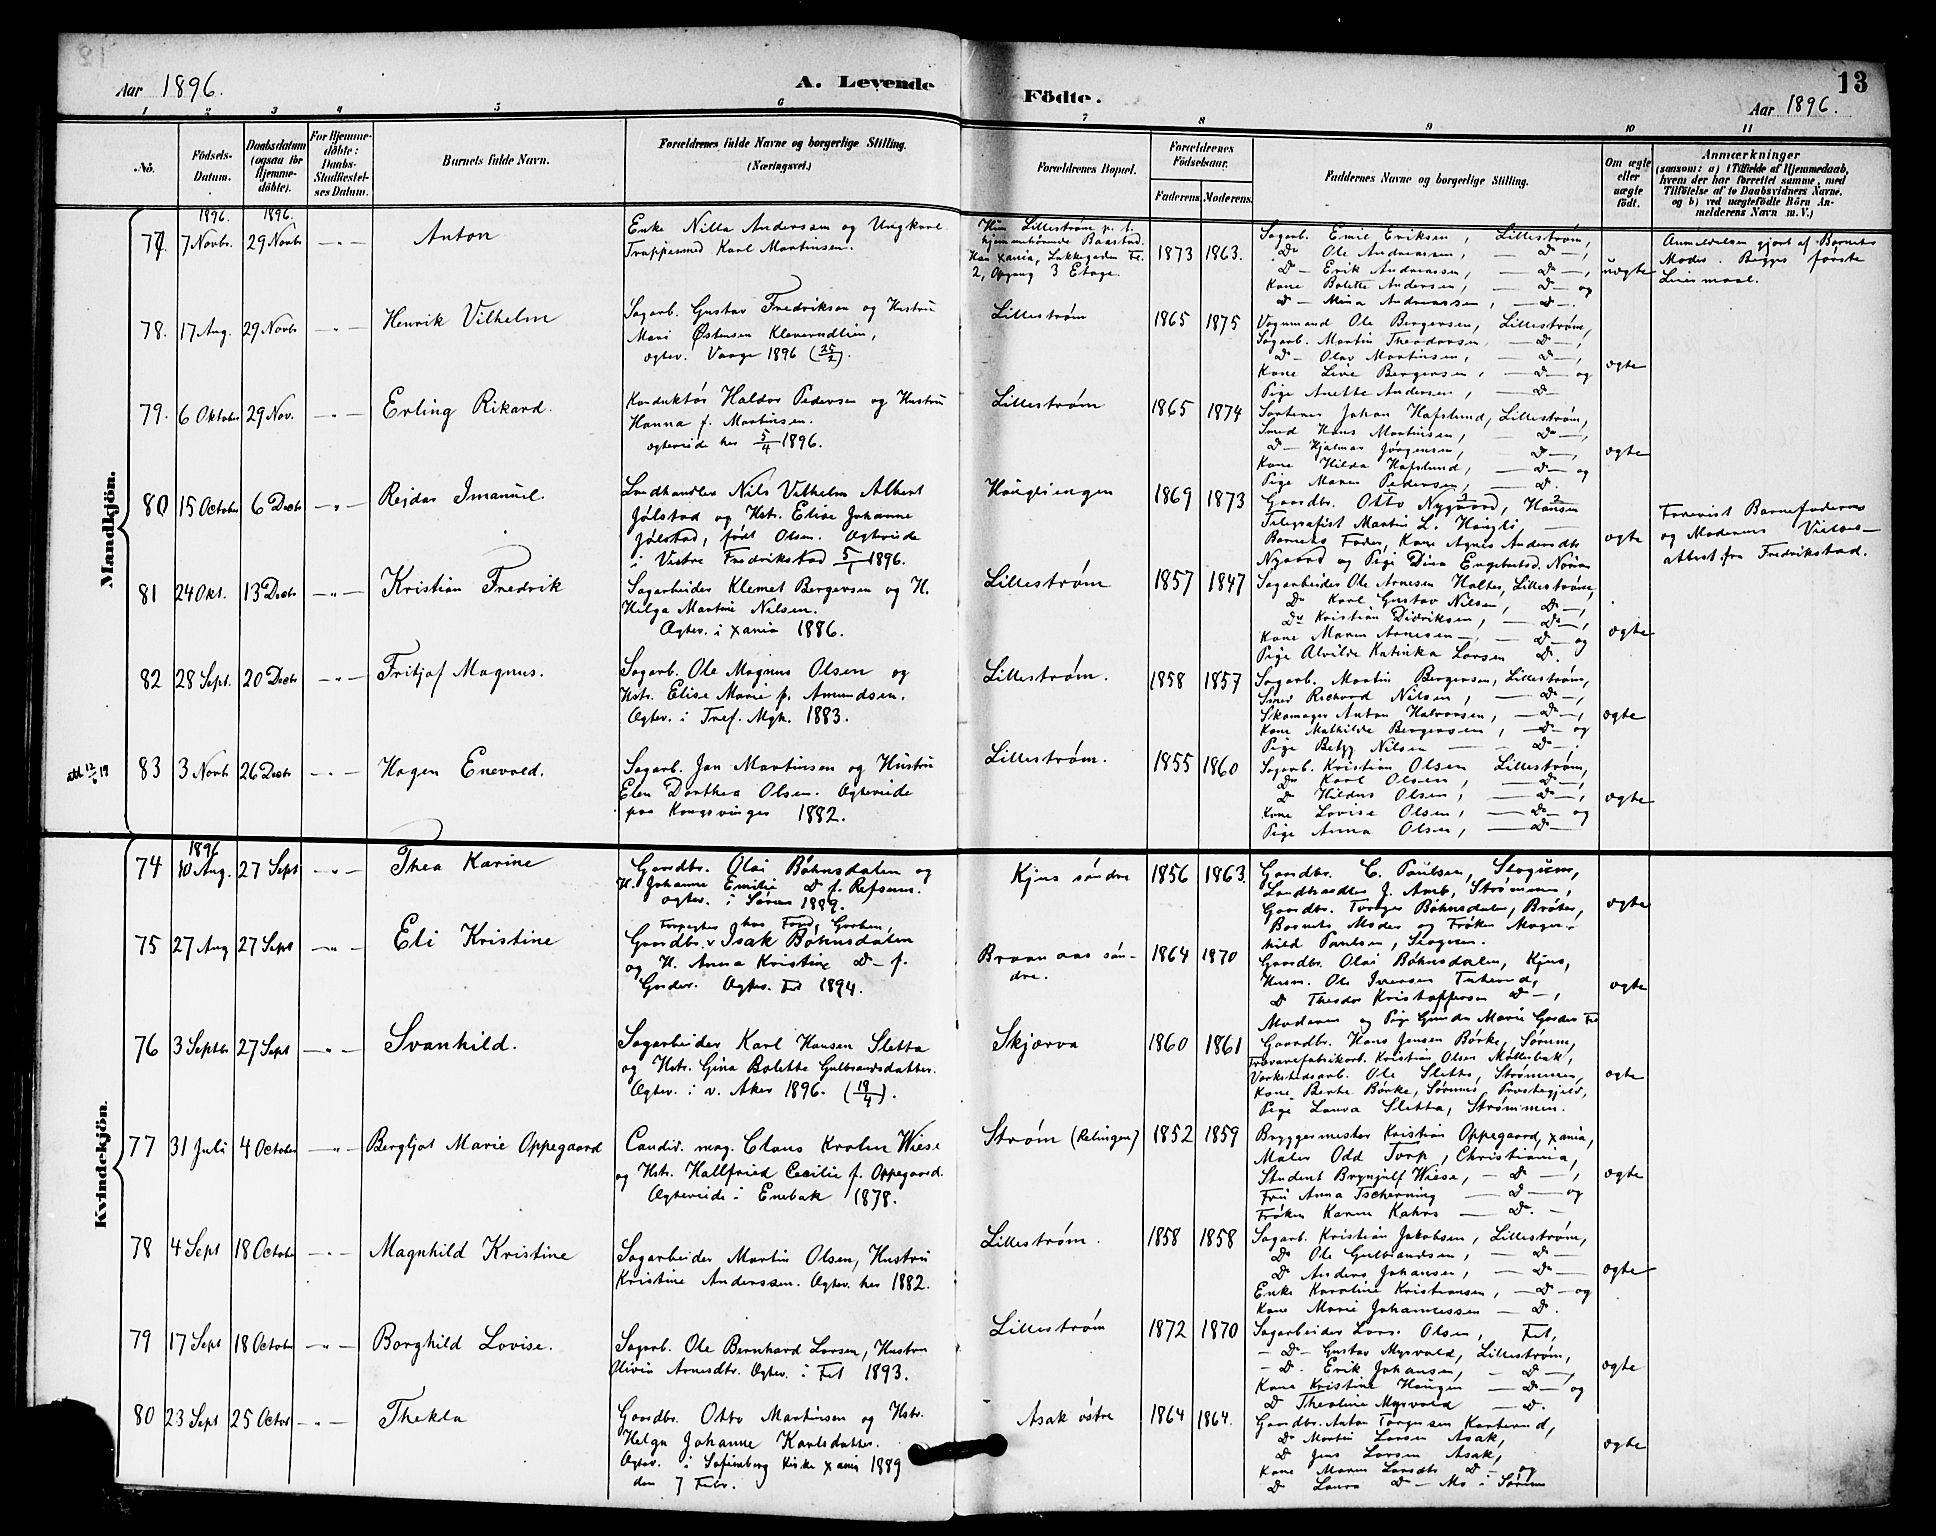 Aar 1896.
A. Levende
Födte.
13
Aar 1896.
1 2 3 4 5 6 7 8 9 10 11
No.
Födsels-
Datum.
Daabsdatum
(ogsaa for
Hjemme-
döbte).
For Hjemme-
döbte:
Daabs-
Stadfæstel-
ses Datum.
Barnets fulde Navn.
Forældrenes fulde Navne og borgerlige Stilling.
(Næringsvei.)
Forældrenes Bopæl.
Forældrenes
Födselsaar.
Faderens
Moderens.
Faddernes Navne og borgerlige Stilling.
Om ægte
eller
uægte
födt.
Anmærkninger
(saasom: a) i Tilfælde af Hjemmedaab,
hvem der har forrettet samme, med
Tilföielse af to Daabsvidners Navne,
og b) ved uægtefödte Börn An-
melderens Navn m. V.)
Mandkjön.
1896. 1896.
77 7 Novbr. 29 Novbr. — " — Anton
Enke Nilla Andersen og Ungkarl
Trappesmed Karl Martinsen.
Hun Lillestrøm p. t.
hjemmehørende Baastad.
Han Xania, Lakkegaden
2, Opgang 3 Etage.
1873 1863.
Sagarb. Emil Eriksen, Lillestrøm,
Do Ole Andreassen, — Do —,
D — Erik Andreassen, — Do —,
Kone Bolette Andersen, — D — og
D — Mina Andreassen, — D —.
uægte
Anmeldelsen gjort af Barnets
Moder. Begges første
Leiermaal.
78. 17 Aug. 29 Novbr. — " — Henrik Vilhelm
Sagarb. Gustav Fredriksen og Hustru
Mari Østensen Kleverudlien,
ægtev. Vaage 1896 (25/2).
Lillestrøm
1865 1875
Vognmand Ole Bergersen, Lillestrøm,
Sagarb. Martin Theodorsen, — D —,
D — Olav Martinsen, — D —,
Kone Line Bergersen, — D — og
Pige Anette Andersen, — D —
ægte
79. 6 Oktober 29 Nov. — " — Erling Rikard.
Konduktør Haldor Pedersen og Hustru
Hanna f. Martinsen.
ægteviede her 5/4 1896.
Lillestrøm
1865 1874
Sorterer Johan Hafslund, Lillestrøm,
Smed Hans Martinsen, — Do —,
D — Hjalmar Jörgensen, — D —,
Kone Hilda Hafslund, — D — og
Pige Maren Pedersen, — D.
ægte
80 15 October 6 Decbr — " — Rejdar Imanuel.
Landhandler Nils Vilhelm Albert
Jølstad og Hstr. Elise Johanne
Jølstad, født Olsen. Ægteviede
i Vestre Fredrikstad 5/1 1896.
Haugliengen
1869 1873
Gaardbr. Otto Nygaard,
Telegrafist Martin L. Haugli, —
Barnets Fader, Kone Agnes Andersdtr
Nygaard og Pige Dina Engebretsd.
ægte
Forevist Barnefaderens
og Moderens Vielses-
attest fra Fredrikstad.
81 24 Okt. 13 Decbr — " — Kristian Fredrik
Sagarbeider Klemet Bergersen og H.
Helga Martine Nilsen.
Ægtev. i Xania 1886.
Lillestrøm
1857 1847
Sagarbeider Ole Arnesen Holter, Lillestrøm,
Do Karl Gustav Nilsen, D —,
Do Kristian Didriksen, — Do —,
Kone Maren Arnesen —, — D — og
Pige Alvilde Katinka Larsen D.
ægte
82 28 Sept. 20 Decbr — " — Fritjof Magnus.
Sagarb. Ole Magnus Olsen og
Hstr. Elise Marie f. Amundsen.
Ægtev. i Tref. Mgh. 1883.
Lillestrøm.
1858 1857
Sagarb. Martin Bergersen, Lillestrøm,
Smed Richard Nilsen, — Do —,
Skomager Anton Halvorsen, — Do —,
Kone Mathilde Bergersen, — D — og
Pige Betzy Nilsen — D —.
ægte
att 12/6 19
83 3 Novbr 26 Decbr — " — Hagen Enevald.
Sagarb. Jan Martinsen og Hustru
Elen Dorthea Olsen. Ægteviede
paa Kongsvinger 1882.
Lillestrøm.
1855 1860
Sagarb. Kristian Olsen Lillestrøm,
Do Karl Olsen, — D —,
D Hildus Olsen, — D —,
Kone Lovise Olsen, — Do — og
Pige Anna Olsen, — D —
ægte
Kvindekjön.
1896
74 10 Aug. 27 Sept — " — Thea Karine
Gaardbr. Olai Böhnsdalen og
H. Johanne Emilie D f. Refsum.
ægtev. i Sørum 1889.
Kjus söndre
1856 1863.
Gaardbr. C. Paulsen,
Landhandler J. Amb, Strømmen,
Gaardbr. Torger Böhnsdalen, Bråten,
Barnets Moder og Frøken Magn-
hild Paulsen,
ægte
75 27 Aug 27 Sept — " — Eli Kristine
Gaardbr. Isak Böhnsdalen
og H. Anna Kristine D — f.
Garder. Ægtev. Fet 1894.
Braanaas sön-
dre.
1864 1870
Gaardbr. Olai Böhnsdalen, Kjus,
Husm. Ole Iversen
D Theodor Kristoffersen D —,
Moderen og Pige Gunda Marie Garder Fet
ægte
76 3 Septbr 27 Sept — " — Svanhild.
Sagarbeider Karl Hansen Sletta
og Hstr. Gina Bolette Gulbrandsdatter.
Ægtev. i v. Aker 1896. (19/4).
Skjærva
1860 1861
Gaardbr. Hans Jensen Börke, Sørum,
Trævarefabrikarb. Kristian Olsen Møllerbak,
Værkstedsarb. Ole Sletta, Strømmen,
Kone Berte Börke, Sørums Præstegjeld,
Pige Laura Sletta, Strømmen.
ægte
77 31 Juli 4 October — " — Bergljot Marie Oppegaard
Candid. mag. Claus Krohn Wiese
og Hstr. Hallfried Cecilie f. Oppegaard.
Ægteviede i Enebak 1878.
Strøm (Relingen)
1852 1859
Bryggermester Kristian Oppegaard, Xania,
Maler Odd Torp, Christiania,
Student Brynjulf Wiese, — D —,
Fru Anna Tscherning — D — og
Frøken Karen Kahrs — D. —
ægte
78 4 Sept 18 October — " — Magnhild Kristine
Sagarbeider Martin Olsen, Hustru
Kristine Anderssen. Ægtev. her 1882.
Lillestrøm.
1858 1858
Sagarb. Kristian Jakobsen, Lillestrøm,
Do Ole Gulbrandsen, — D —
D Anders Johansen, — Do —
Enke Karoline Kristiansen, — D — og
Kone Marie Johannessen — D.
ægte
79 17 Sept 18 October — " — Borghild Lovise.
Sagarb. Ole Bernhard Larsen, Hustru
Olivia Arnesdtr. Ægtev. i Fet 1893.
Lillestrøm
1872 1870
Sagarbeider Lars Olsen, Fet,
— D — Gustav Myrvold, Lillestrøm,
— D. Erik Johansen, — D —,
Kone Kristine Haugen — D — og
D Theoline Myrvold — D.
ægte
80 23 Sept 25 Octor — " — Thekla
Gaardbr. Otto Martinsen og Hstr.
Helga Johanne Karlsdatter.
Ægtev. i Sofienberg Kirke Xania 1889
den 7 Febr.
Asak östre
1864 1864.
Gaardbr. Anton Torgersen
Do Martin Larsen Asak,
D Jens Larsen Asak,
Kone Maren Larsdtr D — og
D Laura D — Mo i Sørum
ægte